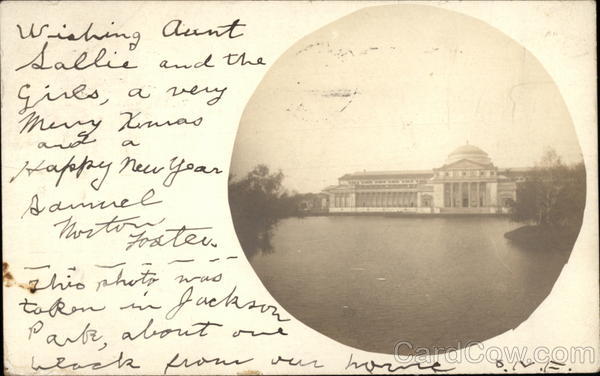 Wishing Aunt
Sallie and the
Girls, a very
Merry Xmas
and a
Happy New Year
Samuel
Norton
Foster
This photo was
taken in Jackson
Park, about one
block from our home S.N.F.
CardCow.com